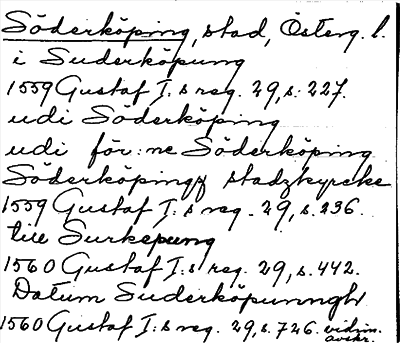 Söderköping, stad, Österg. l.
i Suderköpung
1559 Gustaf I:s reg. 29, s. 227.
udi Söderköping
udi för:ne Söderköping
Söderköpingz stadzkyrcke
1559 Gustaf I:s reg. 29, s. 236.
till Surkepung
1560 Gustaf I:s reg. 29, s. 442.
Datum Suderköpunngh
1560 Gustaf I:s reg. 29, s. 726. vidim. avskr.